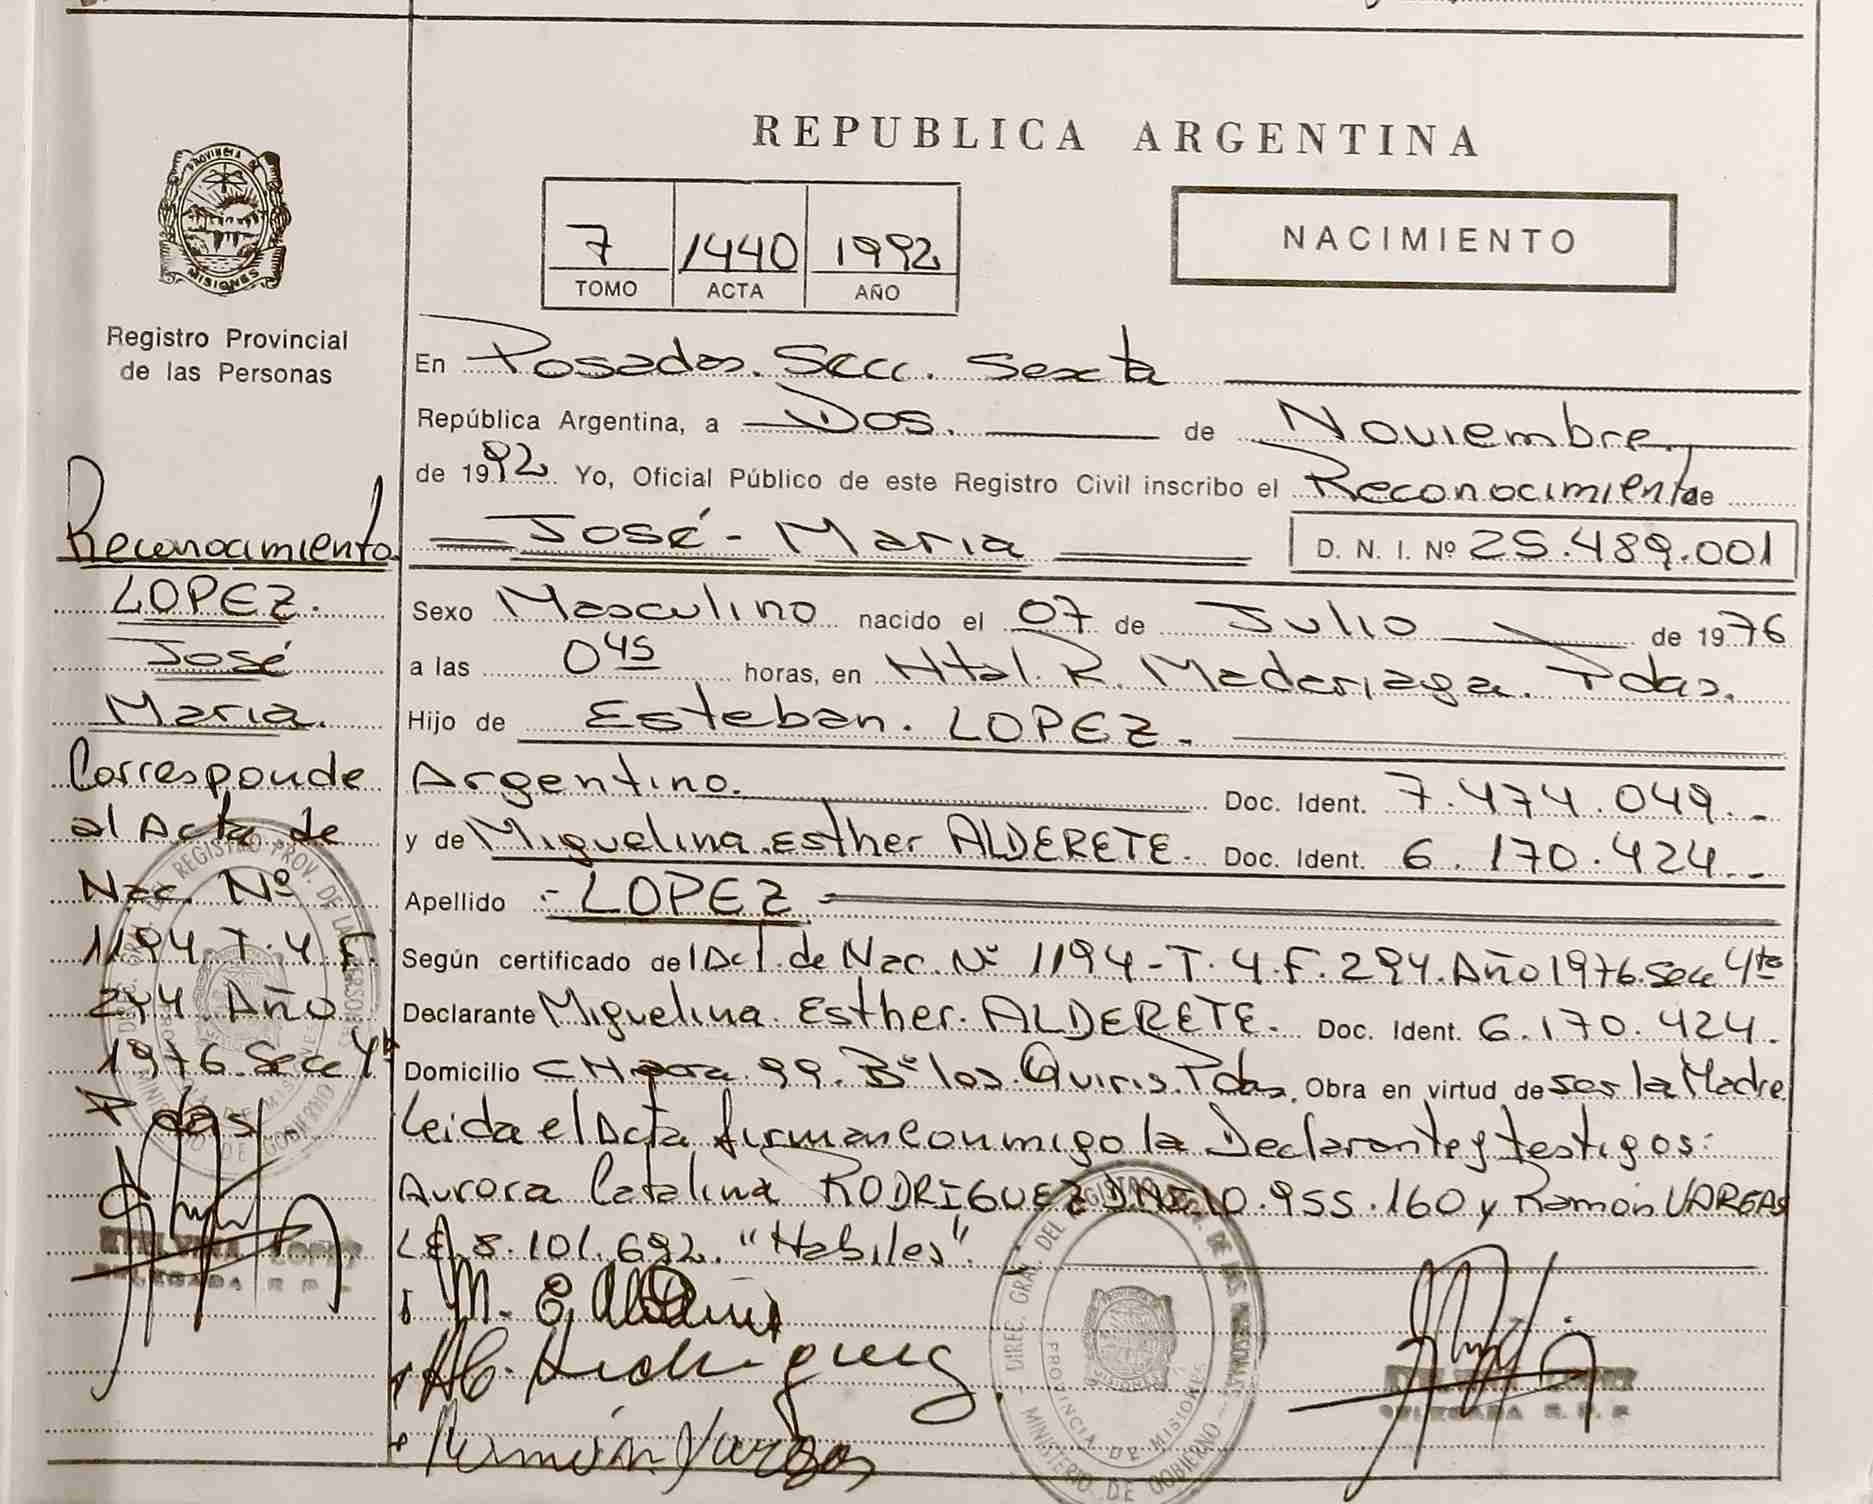 REPUBLICA ARGENTINA
NACIMIENTO
7 1440 1992
TOMO ACTA AÑO
PROVINCIA DE
MISIONES
Registro Provincial
de las Personas
Reconocimiento
LOPEZ.
José
Maria.
Corresponde
al Acta de
Nac. Nº
1194 T. 4 F.
294. Año
1976. Secc 4ta
Pdas
En Posadas. Secc. Sexta
República Argentina, a Dos. de Noviembre
de 1992 Yo, Oficial Público de este Registro Civil inscribo el Reconocimiento de
José - Maria D. N. I. Nº 25.489.001
Sexo Masculino nacido el 07 de Julio de 1976
a las 0 45 horas, en Htal. R. Madariaga. Pdas.
Hijo de Esteban. LOPEZ.
Argentino. Doc. Ident. 7.474.049.-
y de Miguelina Esther ALDERETE. Doc. Ident. 6.170.424.-
Apellido :- LOPEZ
Según certificado de Act. de Nac. Nº 1194-T.4.F.294.Año 1976.Secc 4ta
Declarante Miguelina. Esther. ALDERETE. Doc. Ident. 6.170.424.
Domicilio CH 99. Bº los. Quiris. Pdas, Obra en virtud de ser la Madre
Leida el Acta firman conmigo la Declarante y testigos:
Aurora Catalina RODRIGUEZ DNI 10.955.160 y Ramón VARGAS
LE 8.101.692. "Habiles"
M. E. Alderete
AC. Rodriguez
Ramón Vargas
DIREC. GRAL. DEL REGISTRO PROV. DE LAS PERSONAS
PROVINCIA DE MISIONES
MINISTERIO DE GOBIERNO
DELEGADA R. P. P.